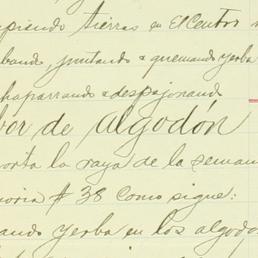 piendo tierras en El Centro
bando, juntando & quemando yerba
haparrando & despajonando
bor de algodón
orta la raya de la seman
oria # 38 como sigue:
ando yerba en los algodo